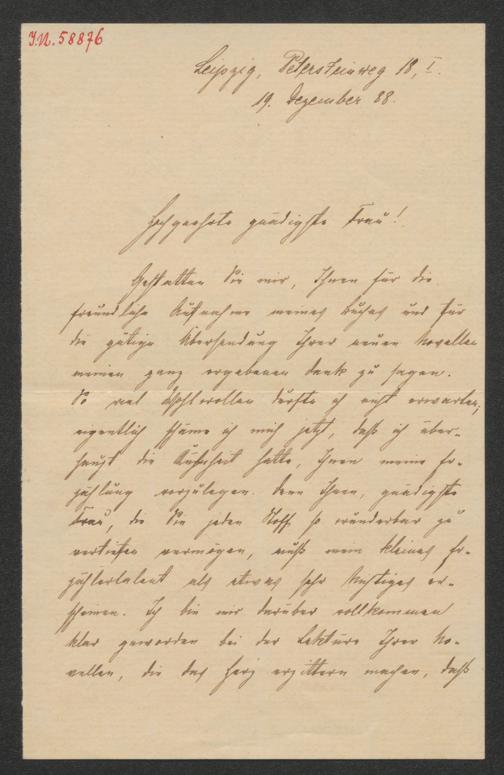 I.N. 58876
Leipzig, Petersteinweg 18, I.
19. Dezember 88.
Hochgeehrte gnädigste Frau!
Gestatten Sie mir, Ihnen für die
freundliche Aufnahme meines Buches und für
die gütige Übersendung Ihrer neuen Novellen
meinen ganz ergebenen Dank zu sagen.
So viel Wohlwollen durfte ich nicht erwarten;
eigentlich schäme ich mich jetzt, daß ich über-
haupt die Kühnheit hatte, Ihnen meine Er-
zählung vorzulegen. Denn Ihnen, gnädigste
Frau, die Sie jeden Stoff so wunderbar zu
vertiefen vermögen, muß mein kleines Er-
zählertalent als etwas sehr Nichtiges er-
scheinen. Ich bin mir darüber vollkommen
klar geworden bei der Lektüre Ihrer No-
vellen, die das Herz erzittern machen, daß